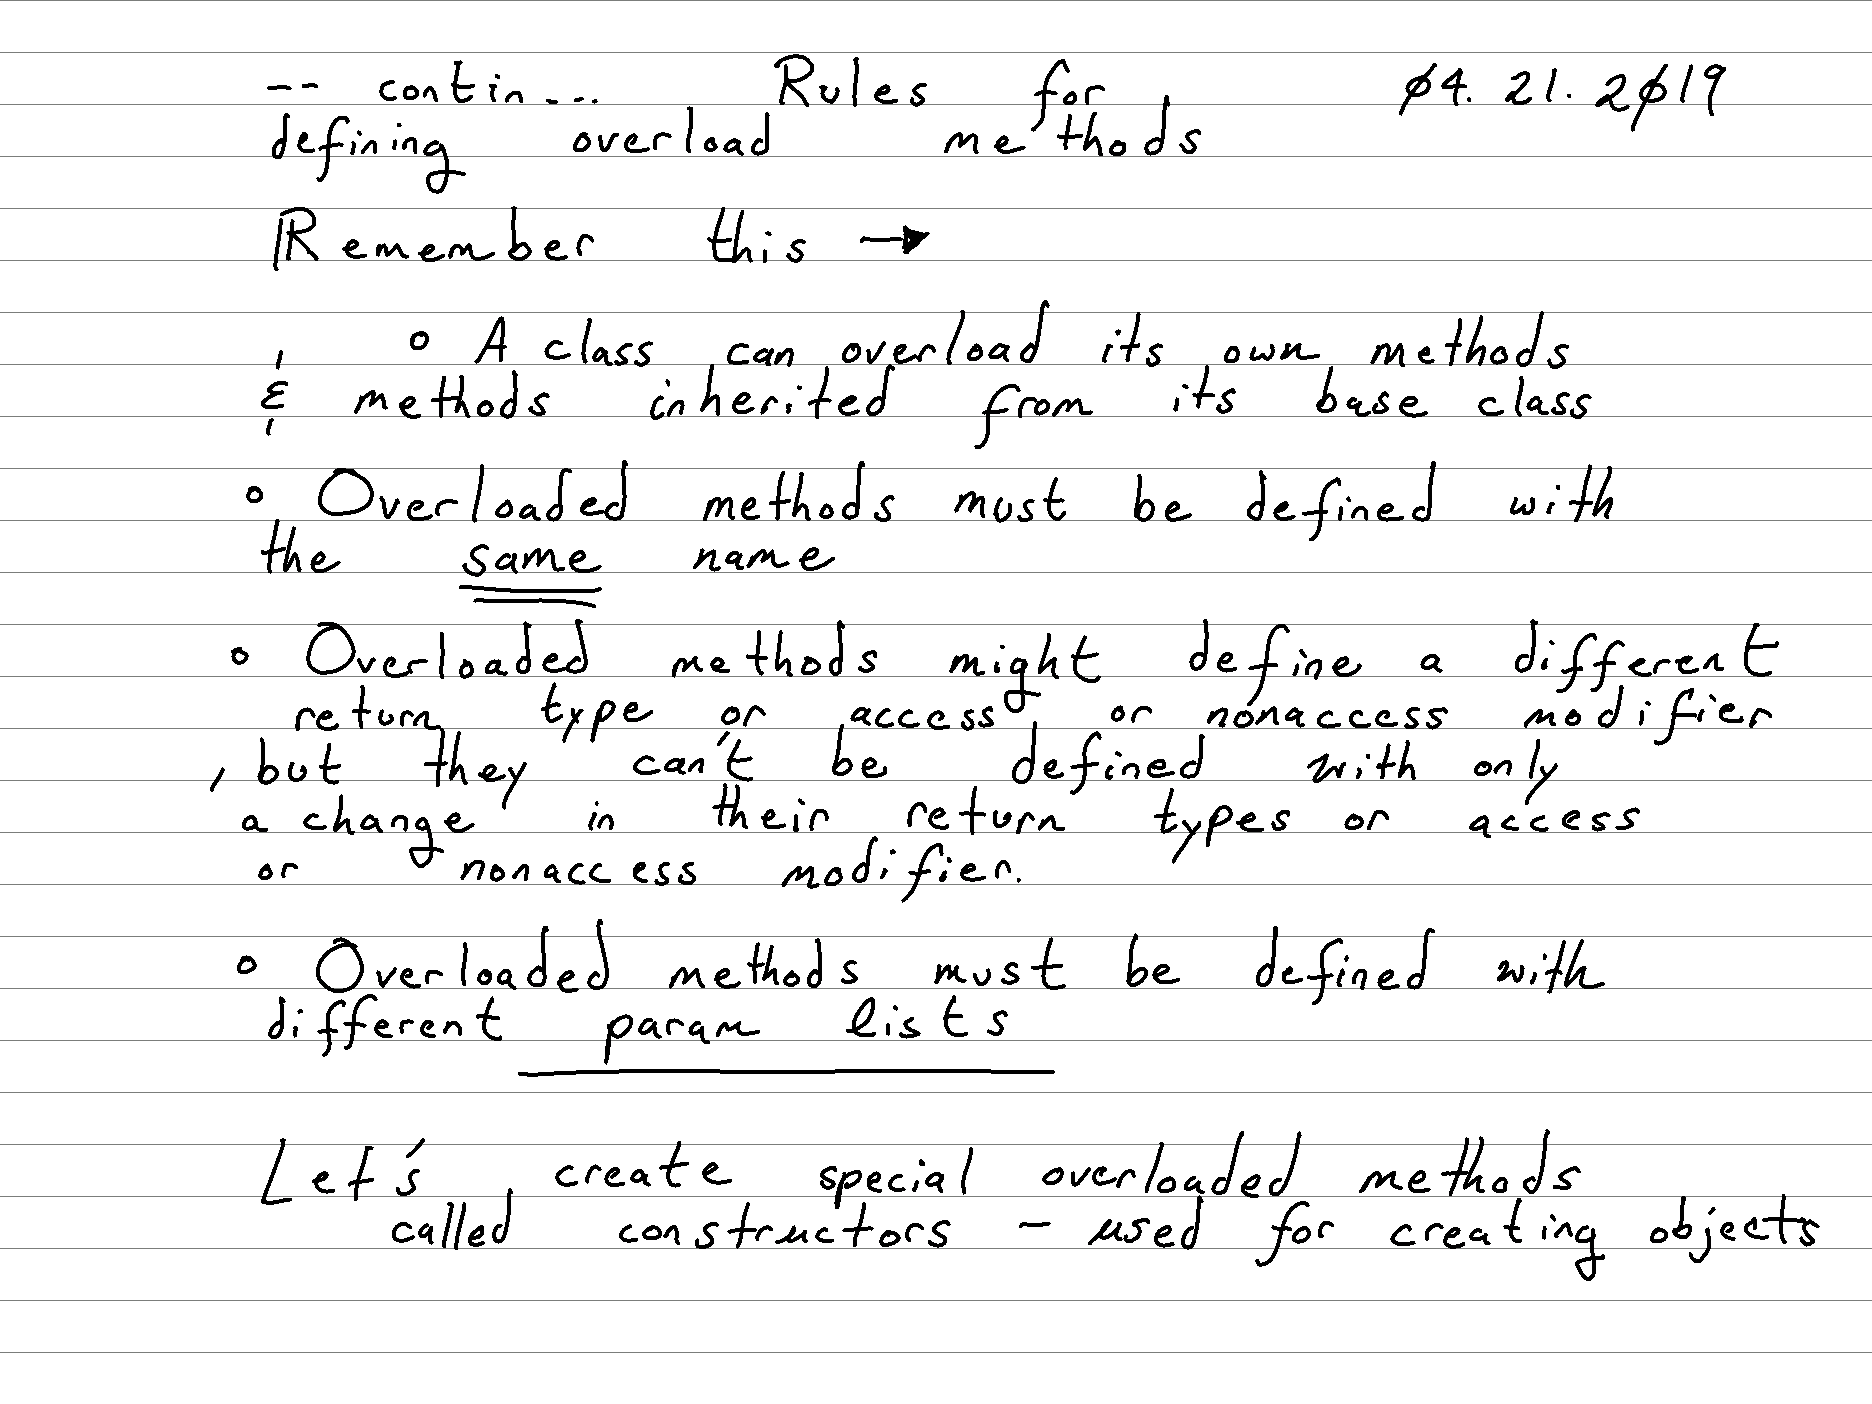 -- contin... Rules for 04.21.2019
defining overload methods
Remember this →
o A class can overload its own methods
& methods inherited from its base class
o Overloaded methods must be defined with
the same name
o Overloaded methods might define a different
return type or access or nonaccess modifier
, but they can't be defined with only
a change in their return types or access
or nonaccess modifier.
o Overloaded methods must be defined with
different param lists
Let's create special overloaded methods
called constructors - used for creating objects